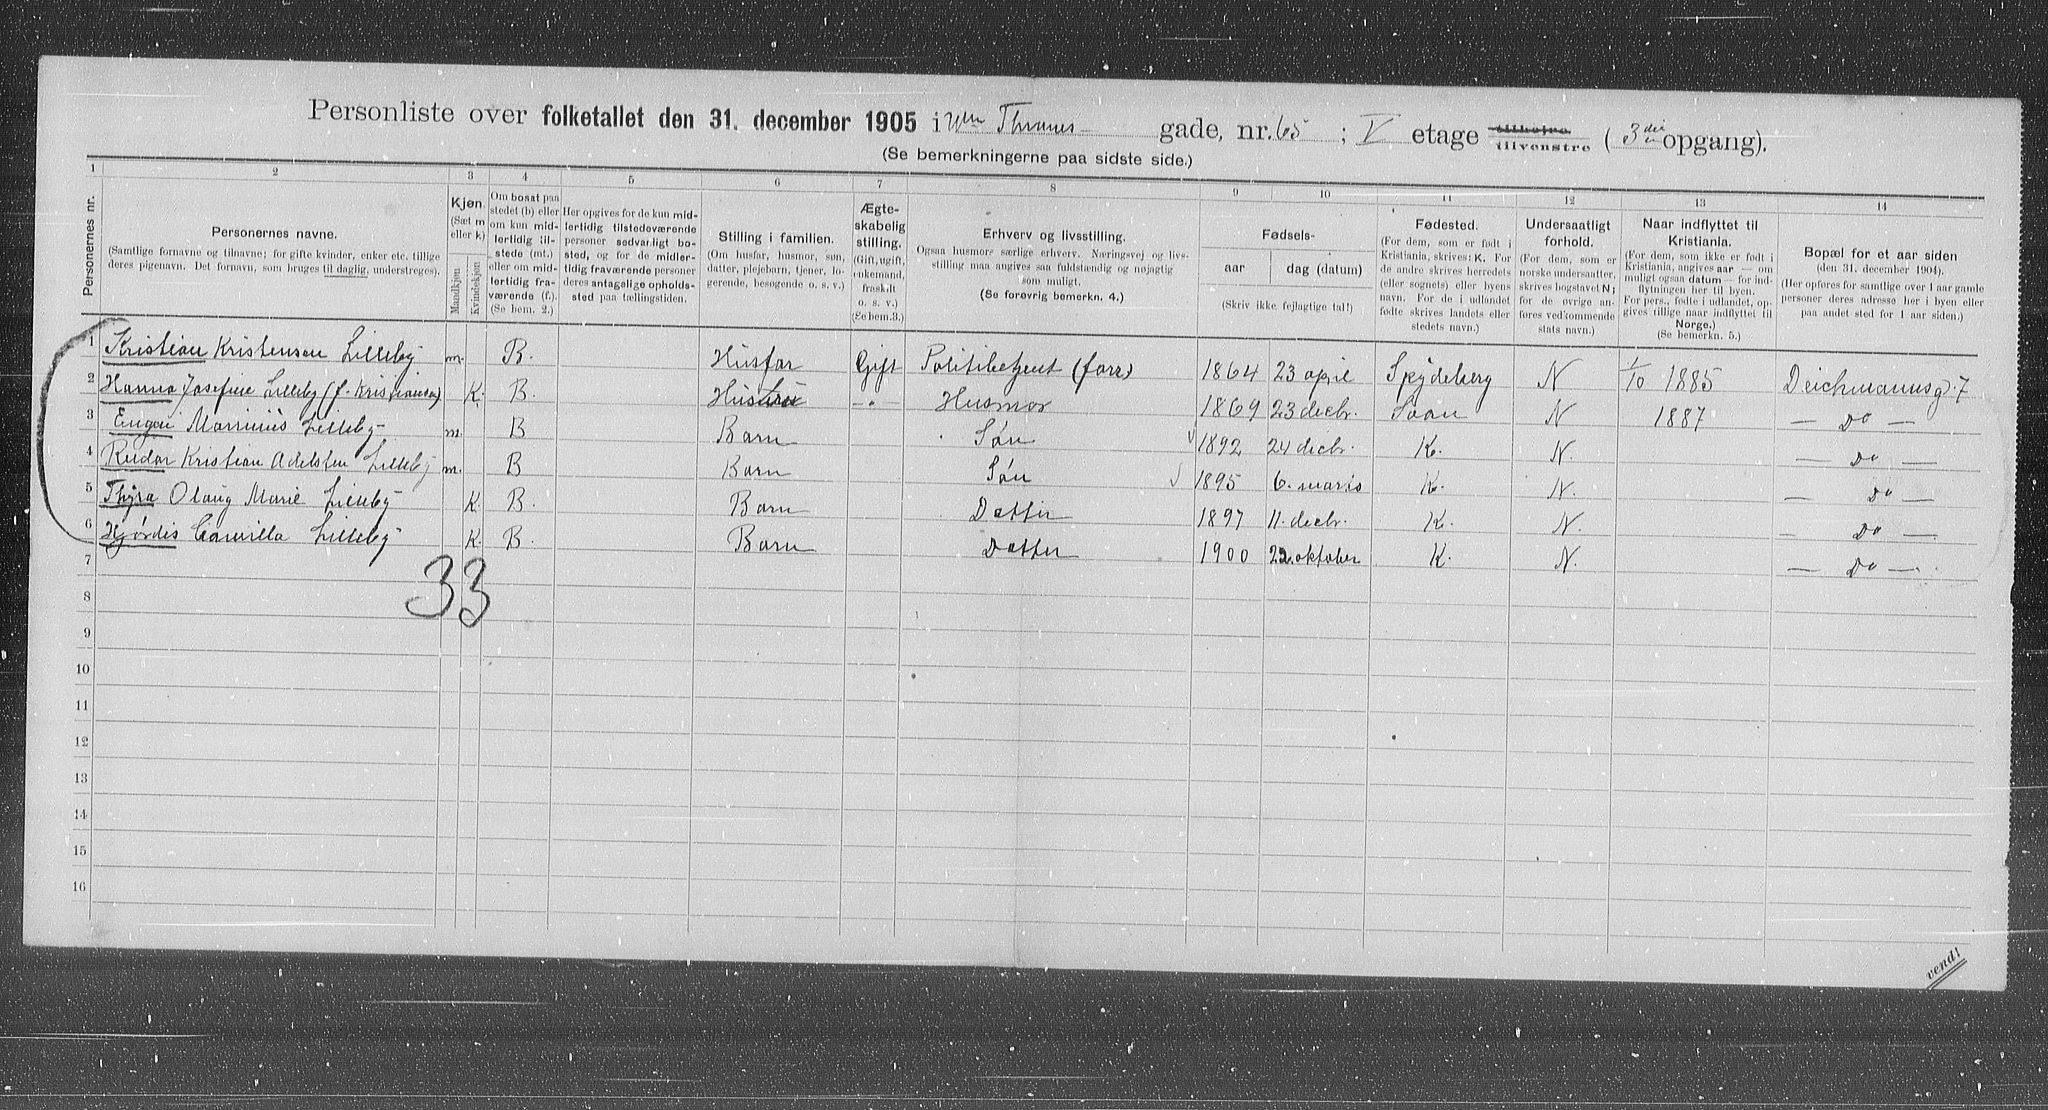 Personliste over folketallet den 31. december 1905 i Thranes gade, nr. 65 ; V etage tilhøjre tilvenstre ( 3die opgang).
(Se bemerkningerne paa sidste side.)
1 2 3 4 5 6 7 8 9 10 11 12 13 14
Personernes nr.
Personernes navne.
(Samtlige fornavne og tilnavne; for gifte kvinder, enker etc. tillige
deres pigenavn. Det fornavn, som bruges til daglig, understreges).
Kjøn.
(Sæt m
eller k)
Mandkjøn
Kvindekjøn
Om bosat paa
stedet (b) eller
om kun mid-
lertidig til-
stede (mt.)
eller om mid-
lertidig fra-
værende (f.).
(Se bem. 2.)
Her opgives for de kun mid-
lertidig tilstedeværende
personer sedvarligt bo-
sted, og for de midler-
tidig fraværende personer
deres antagelige opholds-
sted paa tællingstiden.
Stilling i familien.
(Om husfar, husmor, søn,
datter, plejebarn, tjener, lo-
gerende, besøgende o. s. v.)
Ægte-
skabelig
stilling.
(Gift, ugift,
enkemand,
fraskilt
o. s. v.)
(Se bem. 3.)
Erhverv og livsstilling.
Ogsaa husmors særlige erhverv. Næringsvej og livs-
stilling maa angives saa fuldstændig og nøjagtig
som muligt.
(Se forøvrig bemerkn. 4.)
Fødsels-
aar dag (datum)
(Skriv ikke fejlagtige tal!)
Fødested.
(For dem, som er født i
Kristiania, skrives: K. For
de andre skrives herredets
(eller sognets) eller byens
navn. For de i udlandet
fødte skrives landets eller
stedets navn.)
Undersaatligt
forhold.
(For dem, som er
norske undersaatter,
skrives bogstavet N;
for de øvrige an-
føres vedkommende
stats navn.)
Naar indflyttet til
Kristiania.
(For dem, som ikke er født i
Kristiania, angives aar — om
muligt ogsaa datum — for ind-
flytningen her til byen.
For pers., fødte i udlandet, op-
gives tillige naar indflyttet til
Norge.)
(Se bemerkn. 5.)
Bopæl for et aar siden
(den 31. december 1904).
(Her opføres for samtlige over 1 aar gamle
personer deres adresse her i byen eller
paa andet sted for 1 aar siden.)
1 Kristian Kristensen Lilleby m. B. Husfar Gift Politibetjent (forr) 1864 23 april Spydeberg N 1/10 1885 Deichmannsg. 7
2 Hanna Josefine Lilleby (f. Kristiansen) K. B. Hustru —"— Husmor 1869 23 decbr. Soon N 1887 — Do —
3 Marinius Lilleby m. B Barn Søn 1892 24 decbr. K. N. — Do —
4 Reidar Kristian Adelsten Lilleby m. B Barn Søn 1895 6. marts K. N. — Do —
5 Thyra Olaug Marie Lilleby K. B. Barn Datter 1897 11. decbr. K. N. — Do —
6 Hjørdis Camilla Lilleby K. B. Barn Datter 1900 22. oktober K. N. — Do —
7
33
8
9
10
11
12
13
14
15
16
vend!